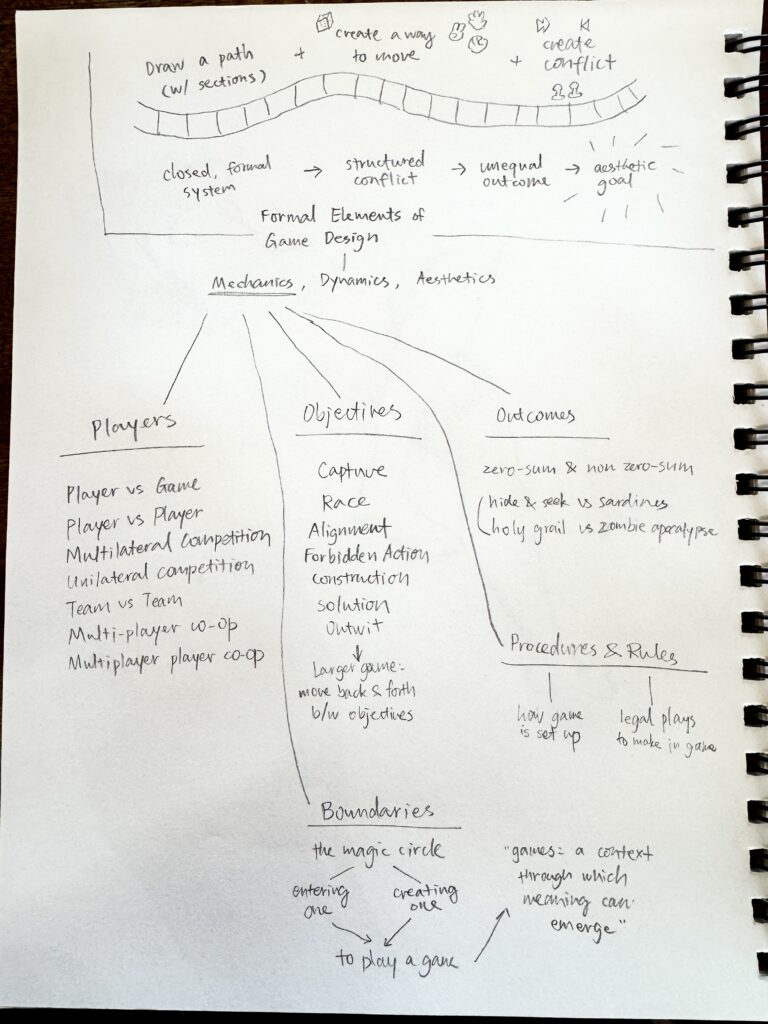 Draw a path
(w/ sections)
+
create a way
to move
+
create
conflict
closed, formal
system
→
structured
conflict
→
unequal
outcome
→
aesthetic
goal
Formal Elements of
Game Design
Mechanics, Dynamics, Aesthetics
Players
Player vs Game
Player vs Player
Multilateral Competition
Unilateral competition
Team vs Team
Multi-player co-op
Multiplayer player co-op
Objectives
Capture
Race
Alignment
Forbidden Action
Construction
Solution
Outwit
Larger game:
move back & forth
b/w objectives
Outcomes
zero-sum & non zero-sum
hide & seek vs sardines
holy grail vs zombie apocalypse
Procedures & Rules
how game
is set up
legal plays
to make in game
Boundaries
the magic circle
entering
one
creating
one
to play a game
"games: a context
through which
meaning can
emerge"